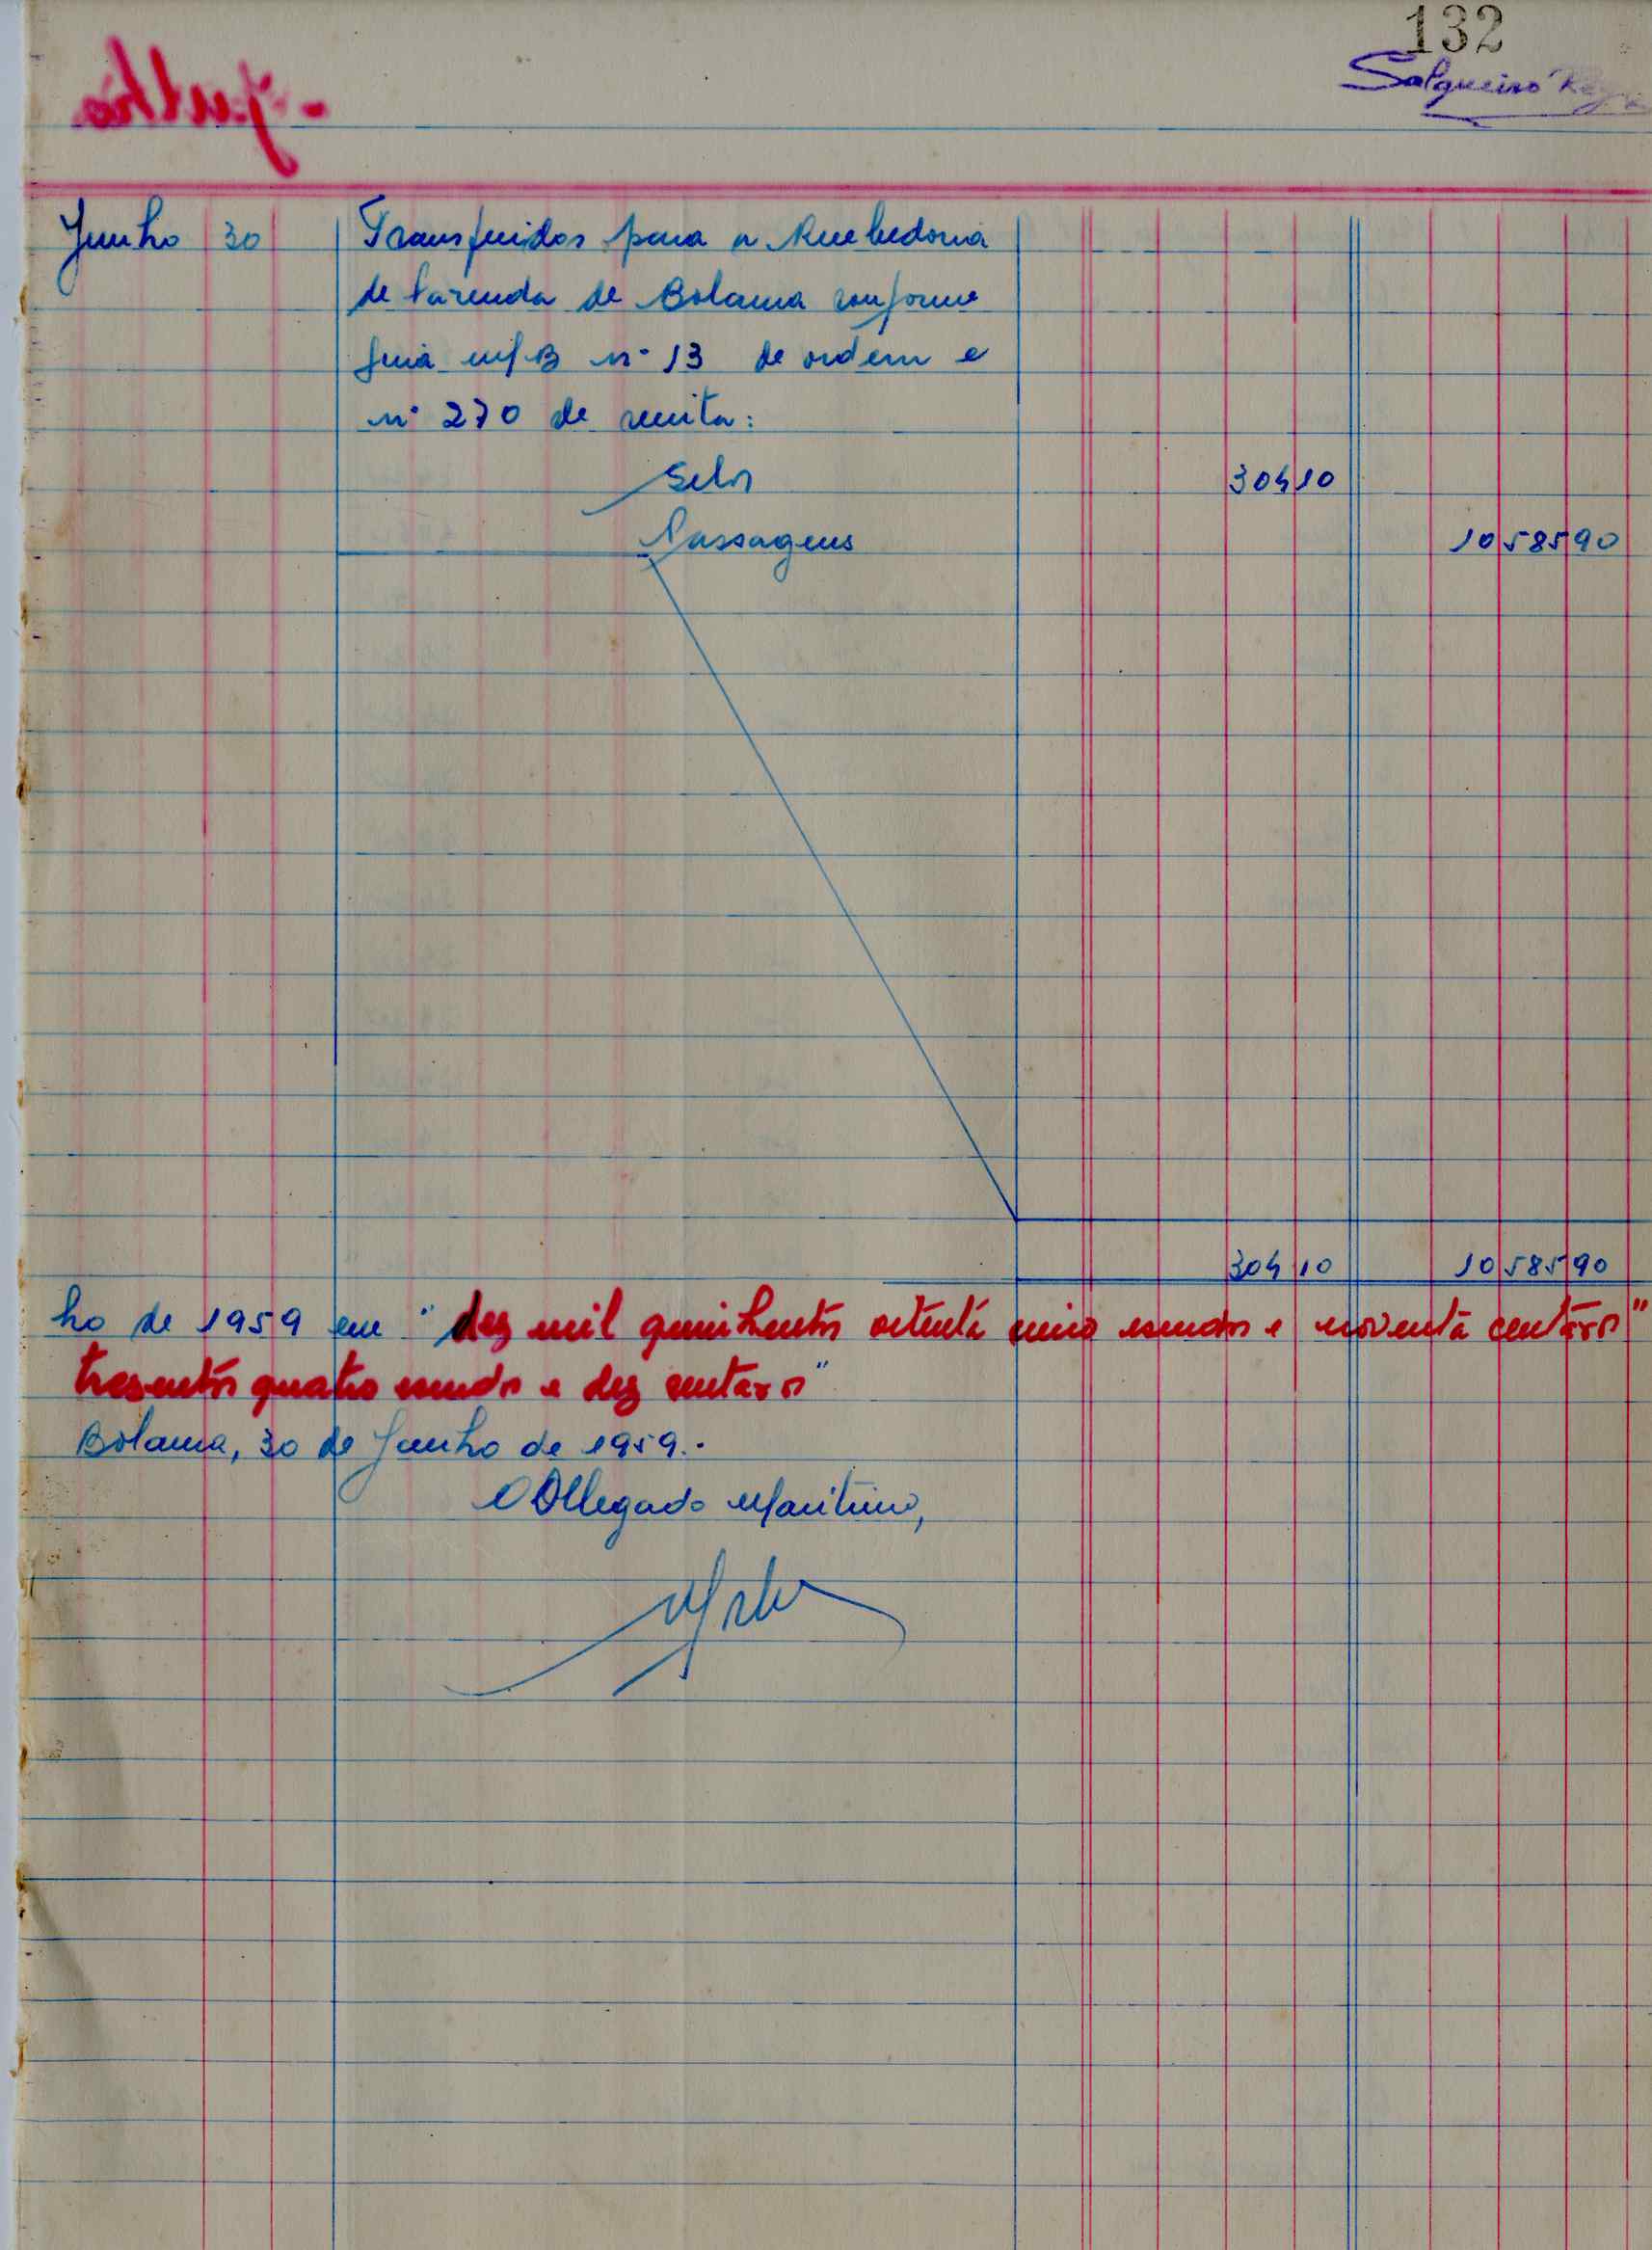 132
Salgueiro
Junho 30 Transferidos para a Recebedoria
de Fazenda de Bolama conforme
guia m/B nº 13 de ordem e
nº 270 de receita:
Selos 304 10
Passagens 10 585 90
304 10 10 585 90
ho de 1959 em "dez mil quinhentos oitenta cinco escudos e noventa centavos"
trezentos quatro escudos e dez centavos"
Bolama, 30 de Junho de 1959.-
O Delegado Maritimo,